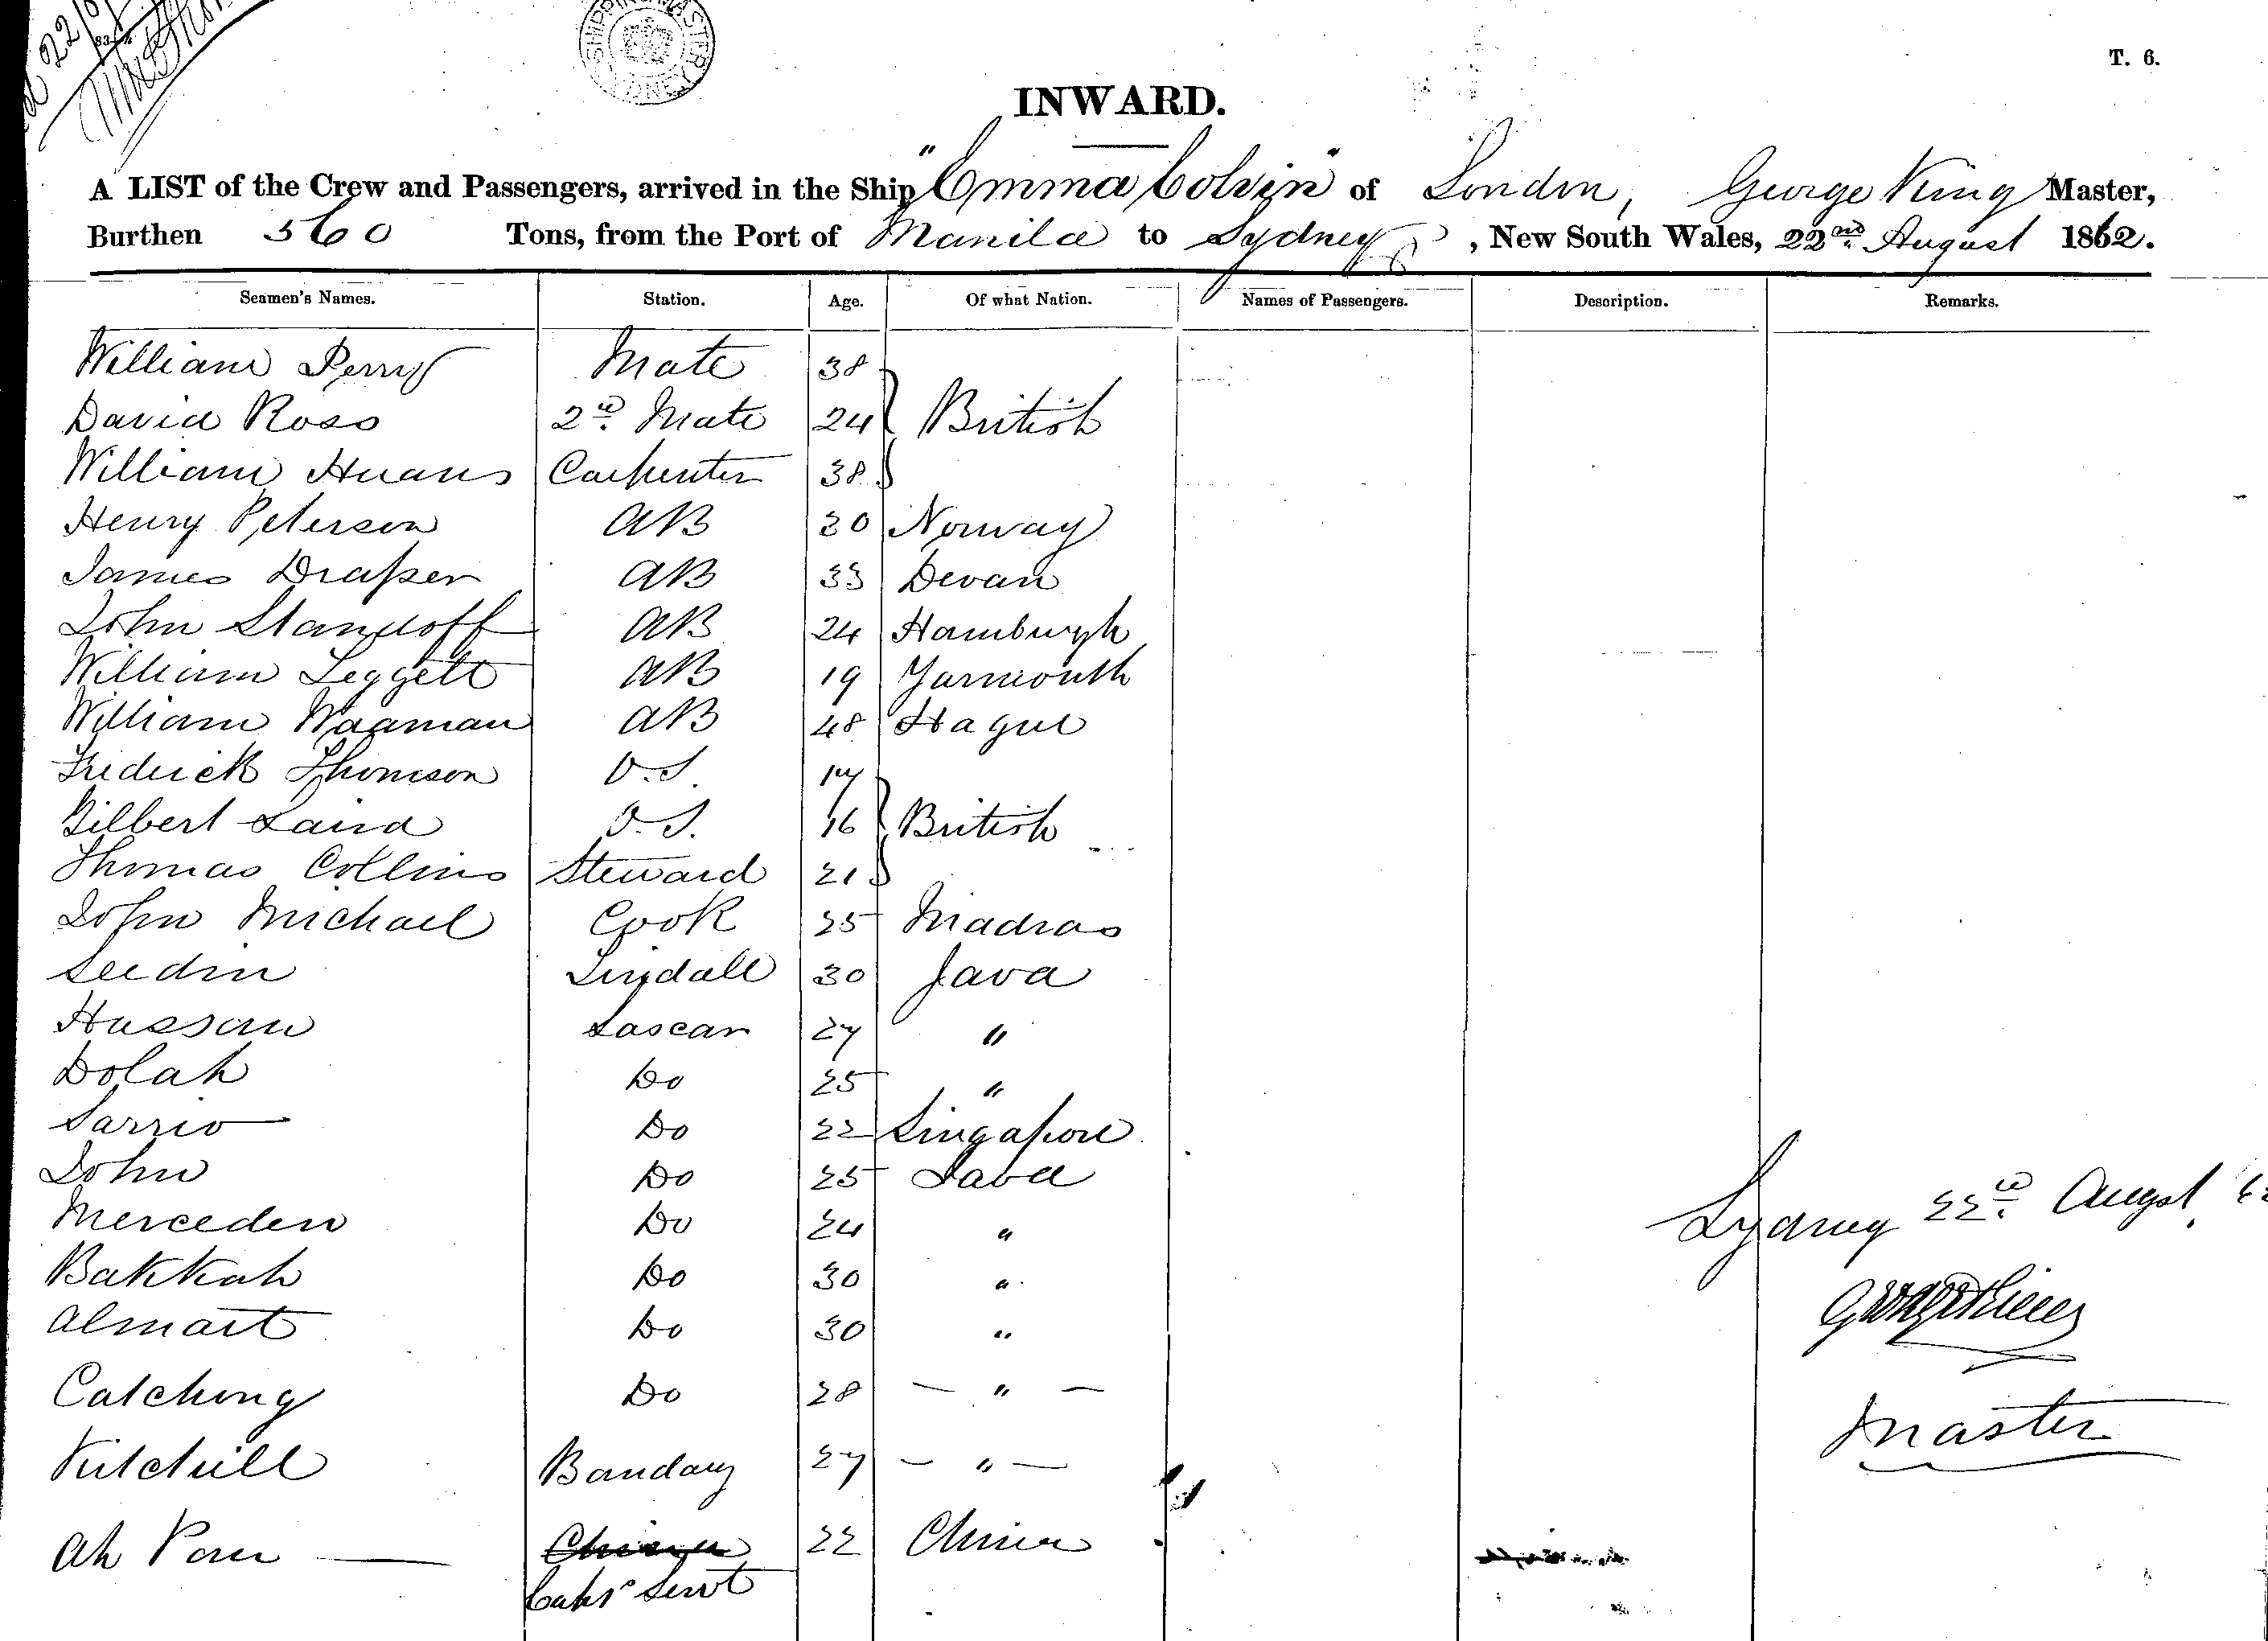 22/8/
SHIPPING MASTER SYDNEY
T. 6.
INWARD.
A LIST of the Crew and Passengers, arrived in the Ship "Emma Colvin" of London, George King Master,
Burthen 560 Tons, from the Port of Manila to Sydney, New South Wales, 22nd August 1862.
Seamen's Names. Station. Age. Of what Nation. Names of Passengers. Description. Remarks.
William Perry Mate 38
David Ross 2d Mate 24 British
William Carpenter 38
Henry Peterson AB 20 Norway
James Draper AB 33 Devan
John Standoff AB 24 Hamburgh
William Leggett AB 19 Yarmouth
William Waaman AB 48 Hague
Frederick Thomson O.S. 17
Gilbert Laird O.S. 16 British
Thomas Collins Steward 21
John Michael Cook 25 Madras
Seedin Tindall 30 Java
Hassan Lascar 27 "
Dolah Do 25 "
Sarrio Do 22 Singapore
John Do 25 Java
Merceden Do 24 "
Bakkah Do 30 "
Almait Do 30 "
Catchong Do 28 — " —
Bandary 27 — " —
Ah — China 22 China
Capts Servt
Sydney 22d Augst 62
George King
Master